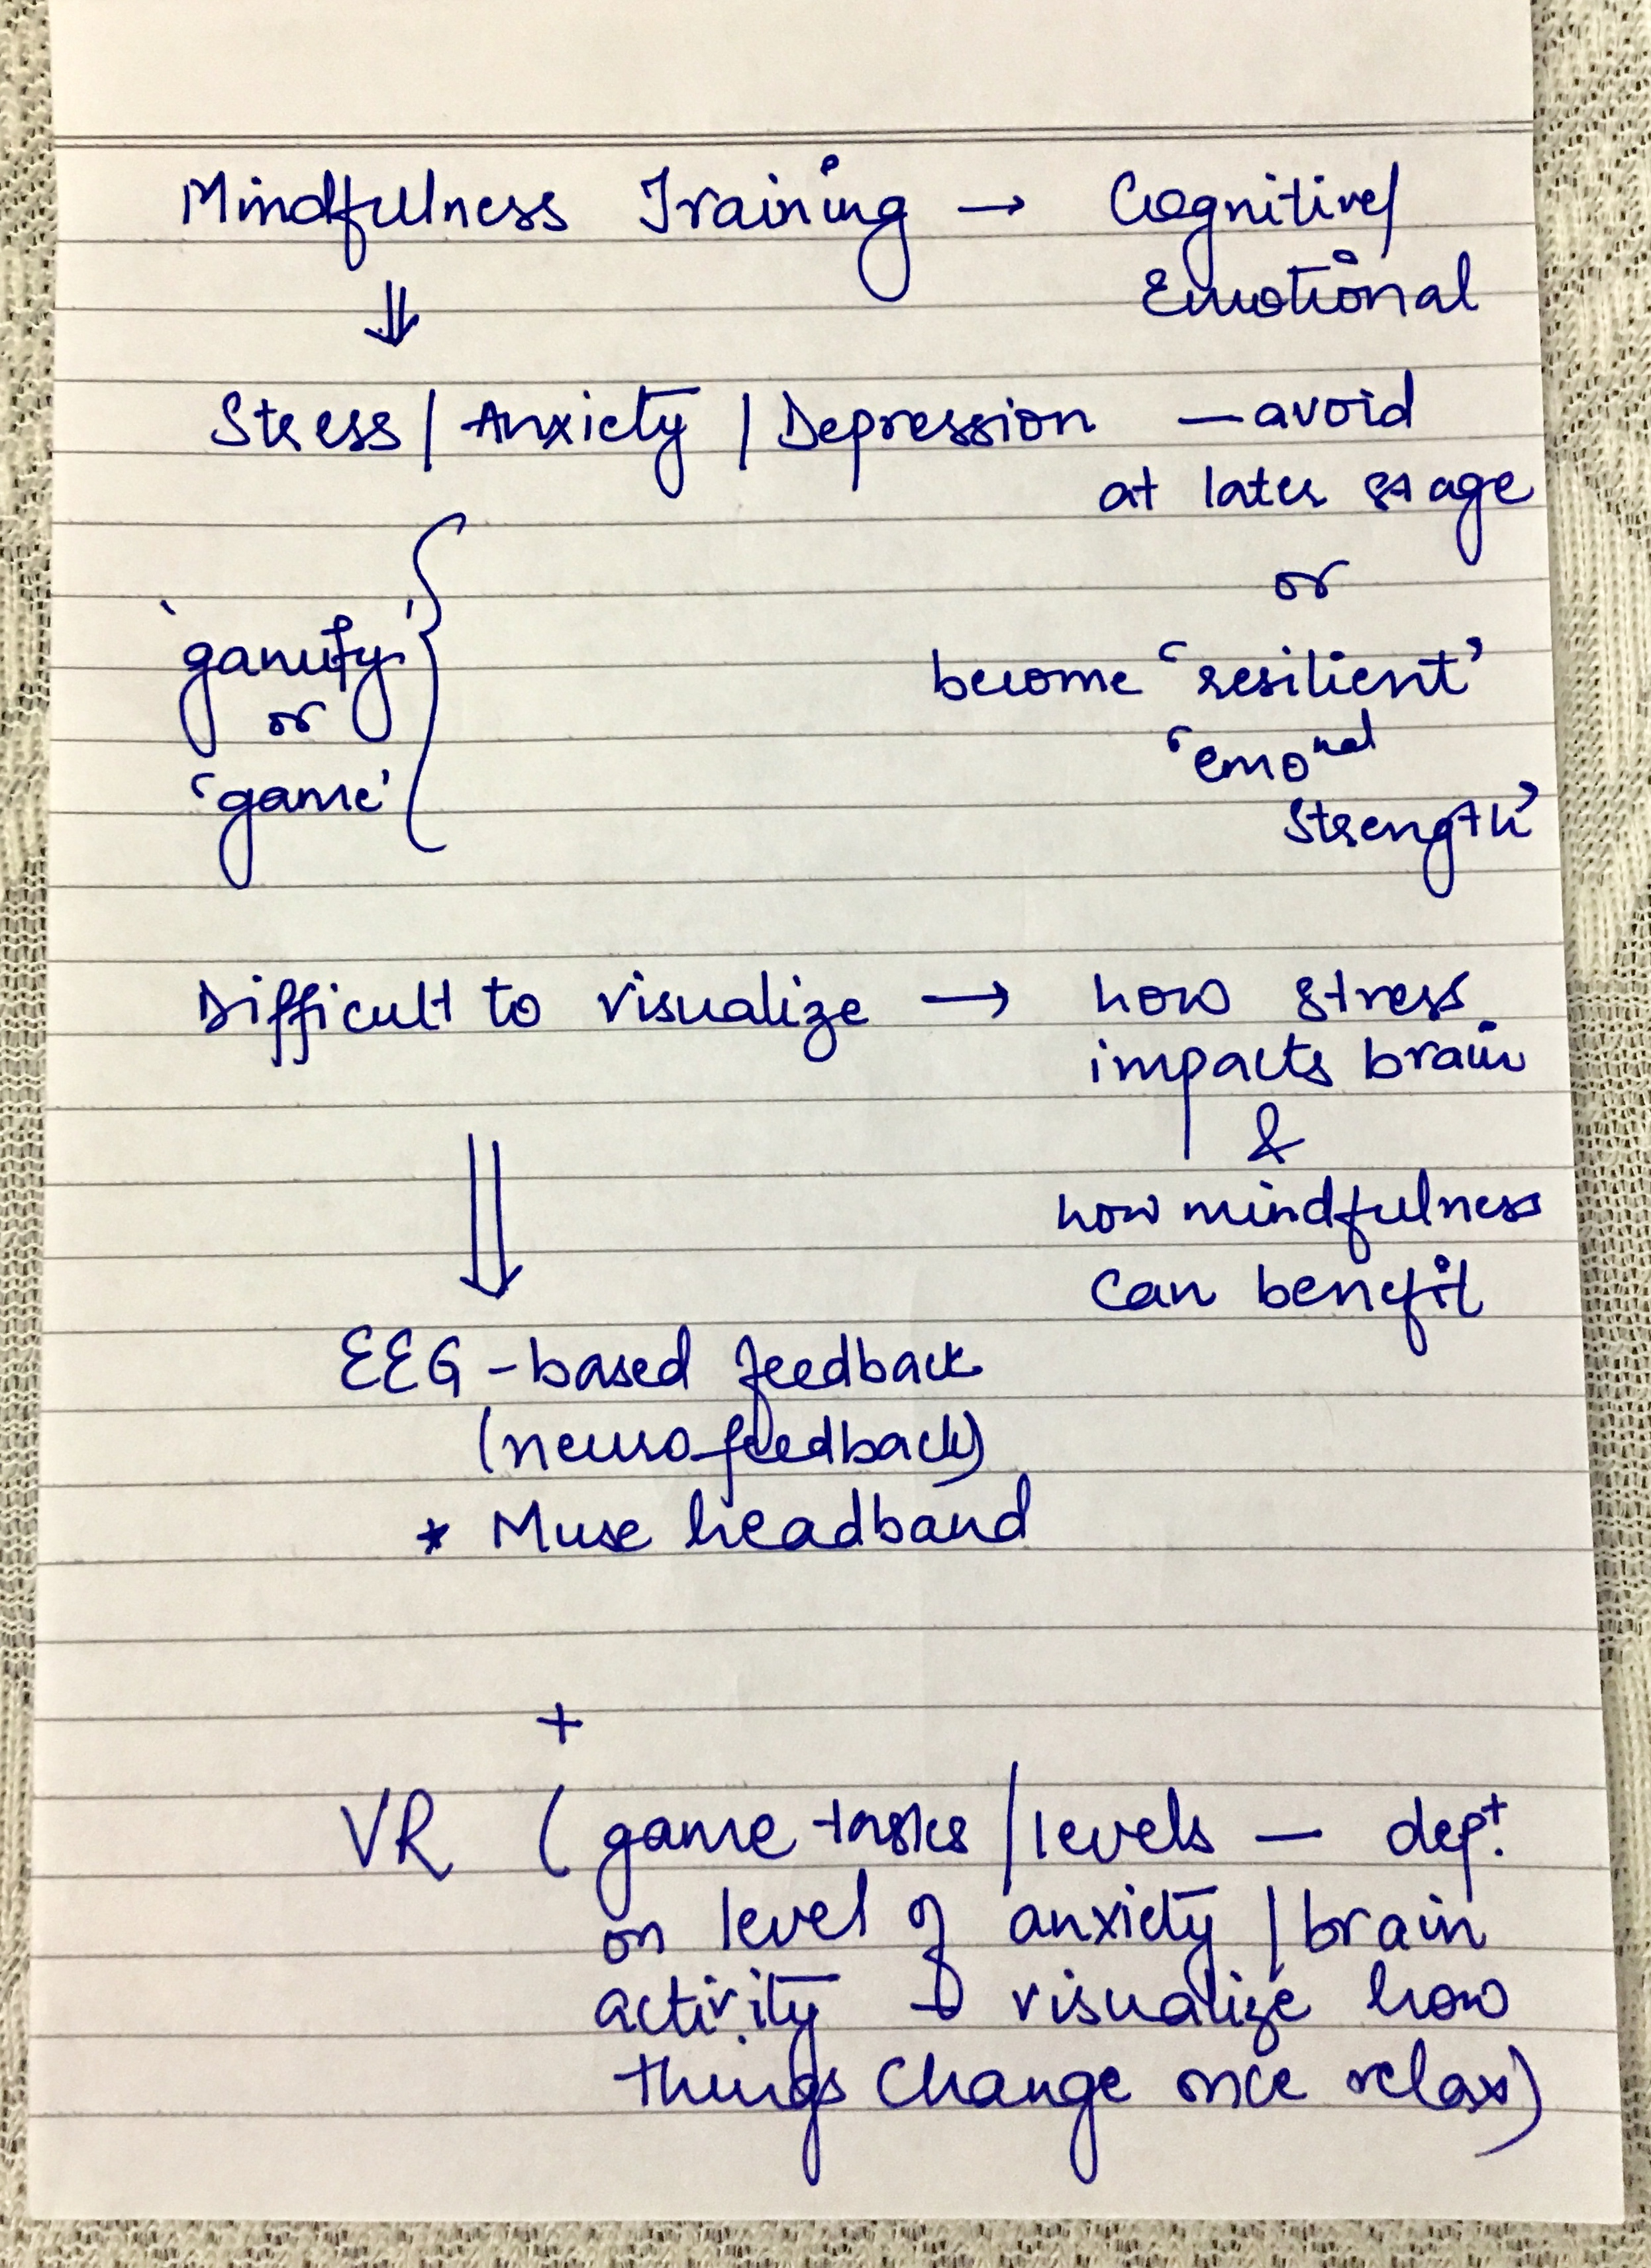 Mindfulness Training → Cognitive/
Emotional
⇓
Stress / Anxiety / Depression — avoid
at later stage
or
'gamify'
or
'game'
become 'resilient'
'emo^nal
strength'
Difficult to visualize → how stress
impacts brain
&
how mindfulness
can benefit
⇓
EEG - based feedback
(neurofeedback)
* Muse headband
+
VR ( game tasks / levels — dept.
on level of anxiety / brain
activity → visualize how
things change once relax)